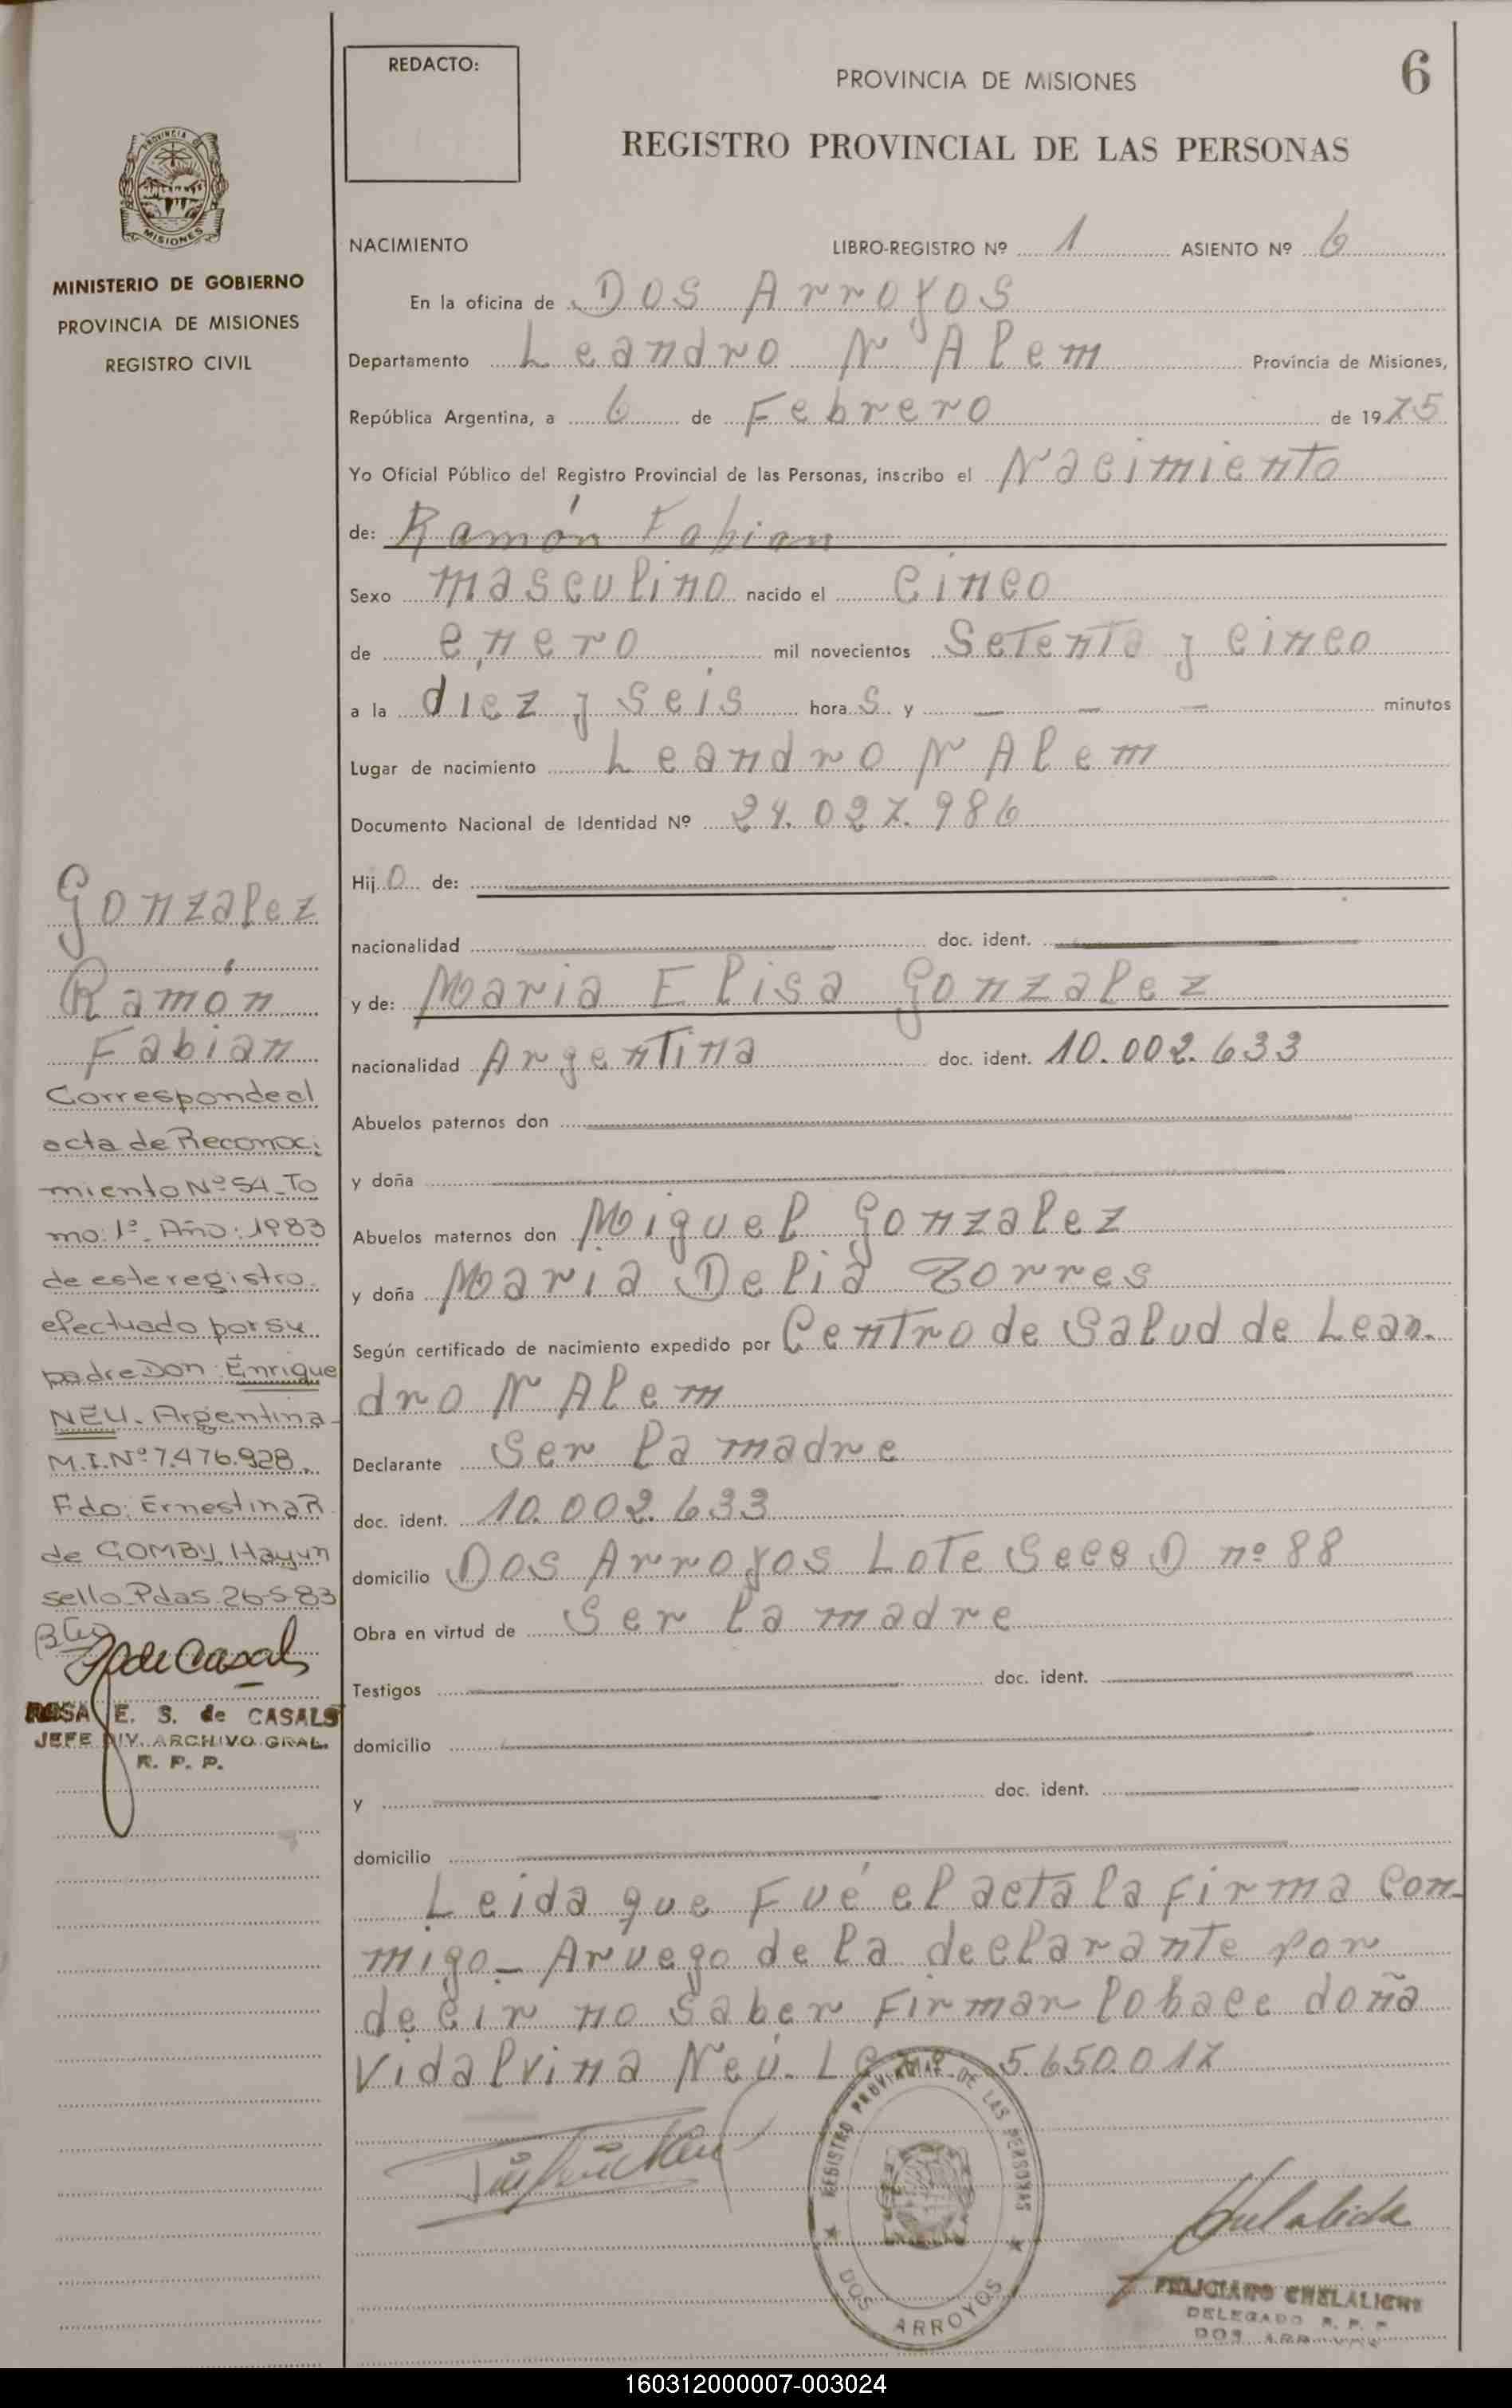 REDACTO:
PROVINCIA DE MISIONES
6
REGISTRO PROVINCIAL DE LAS PERSONAS
PROVINCIA
MISIONES
MINISTERIO DE GOBIERNO
PROVINCIA DE MISIONES
REGISTRO CIVIL
NACIMIENTO LIBRO-REGISTRO Nº 1 ASIENTO Nº 6
En la oficina de Dos Arroyos
Departamento Leandro N Alem Provincia de Misiones,
República Argentina, a 6 de Febrero de 1975
Yo Oficial Público del Registro Provincial de las Personas, inscribo el Nacimiento
de: Ramón Fabian
Sexo masculino nacido el cinco
de enero mil novecientos Setenta y cinco
a la diez y seis hora s y — — — minutos
Lugar de nacimiento Leandro N Alem
Documento Nacional de Identidad Nº 24.027.986
Hijo de:
nacionalidad doc. ident.
y de: Maria Elisa Gonzalez
nacionalidad Argentina doc. ident. 10.002.633
Abuelos paternos don
y doña
Abuelos maternos don Miguel Gonzalez
y doña Maria Delia Torres
Según certificado de nacimiento expedido por Centro de Salud de Lean-
dro N Alem
Declarante Ser la madre
doc. ident. 10.002.633
domicilio Dos Arroyos Lote Secc D nº 88
Obra en virtud de Ser la madre
Testigos doc. ident.
domicilio
y doc. ident.
domicilio
Leida que Fué el acta la Firma con-
migo - A ruego de la declarante por
decir no saber Firmar lo hace doña
Vidalvina Neú. LC Nº 5.650.017
Gonzalez
Ramón
Fabian
Corresponde al
acta de Reconoci
miento Nº 54 - To
mo: 1º. Año: 1983
de este registro.
efectuado por su
padre Don: Enrique
NEU. Argentina -
M.I. Nº 7.476.928.
Fdo: Ernestina R
de GOMBY. Hay un
sello. Pdas. 26-5-83
de Casals
ROSA E. S. de CASALS
JEFE DIV. ARCHIVO GRAL.
R. P. P.
REGISTRO PROVINCIAL DE LAS PERSONAS
DOS ARROYOS
FELICIANO CHELALICHE
DELEGADO R. P. P.
DOS ARROYOS
160312000007-003024